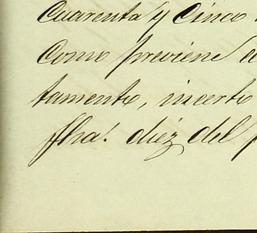 Cuarenta y Cinco
Como previene
tamento, incerto
fha! diez del